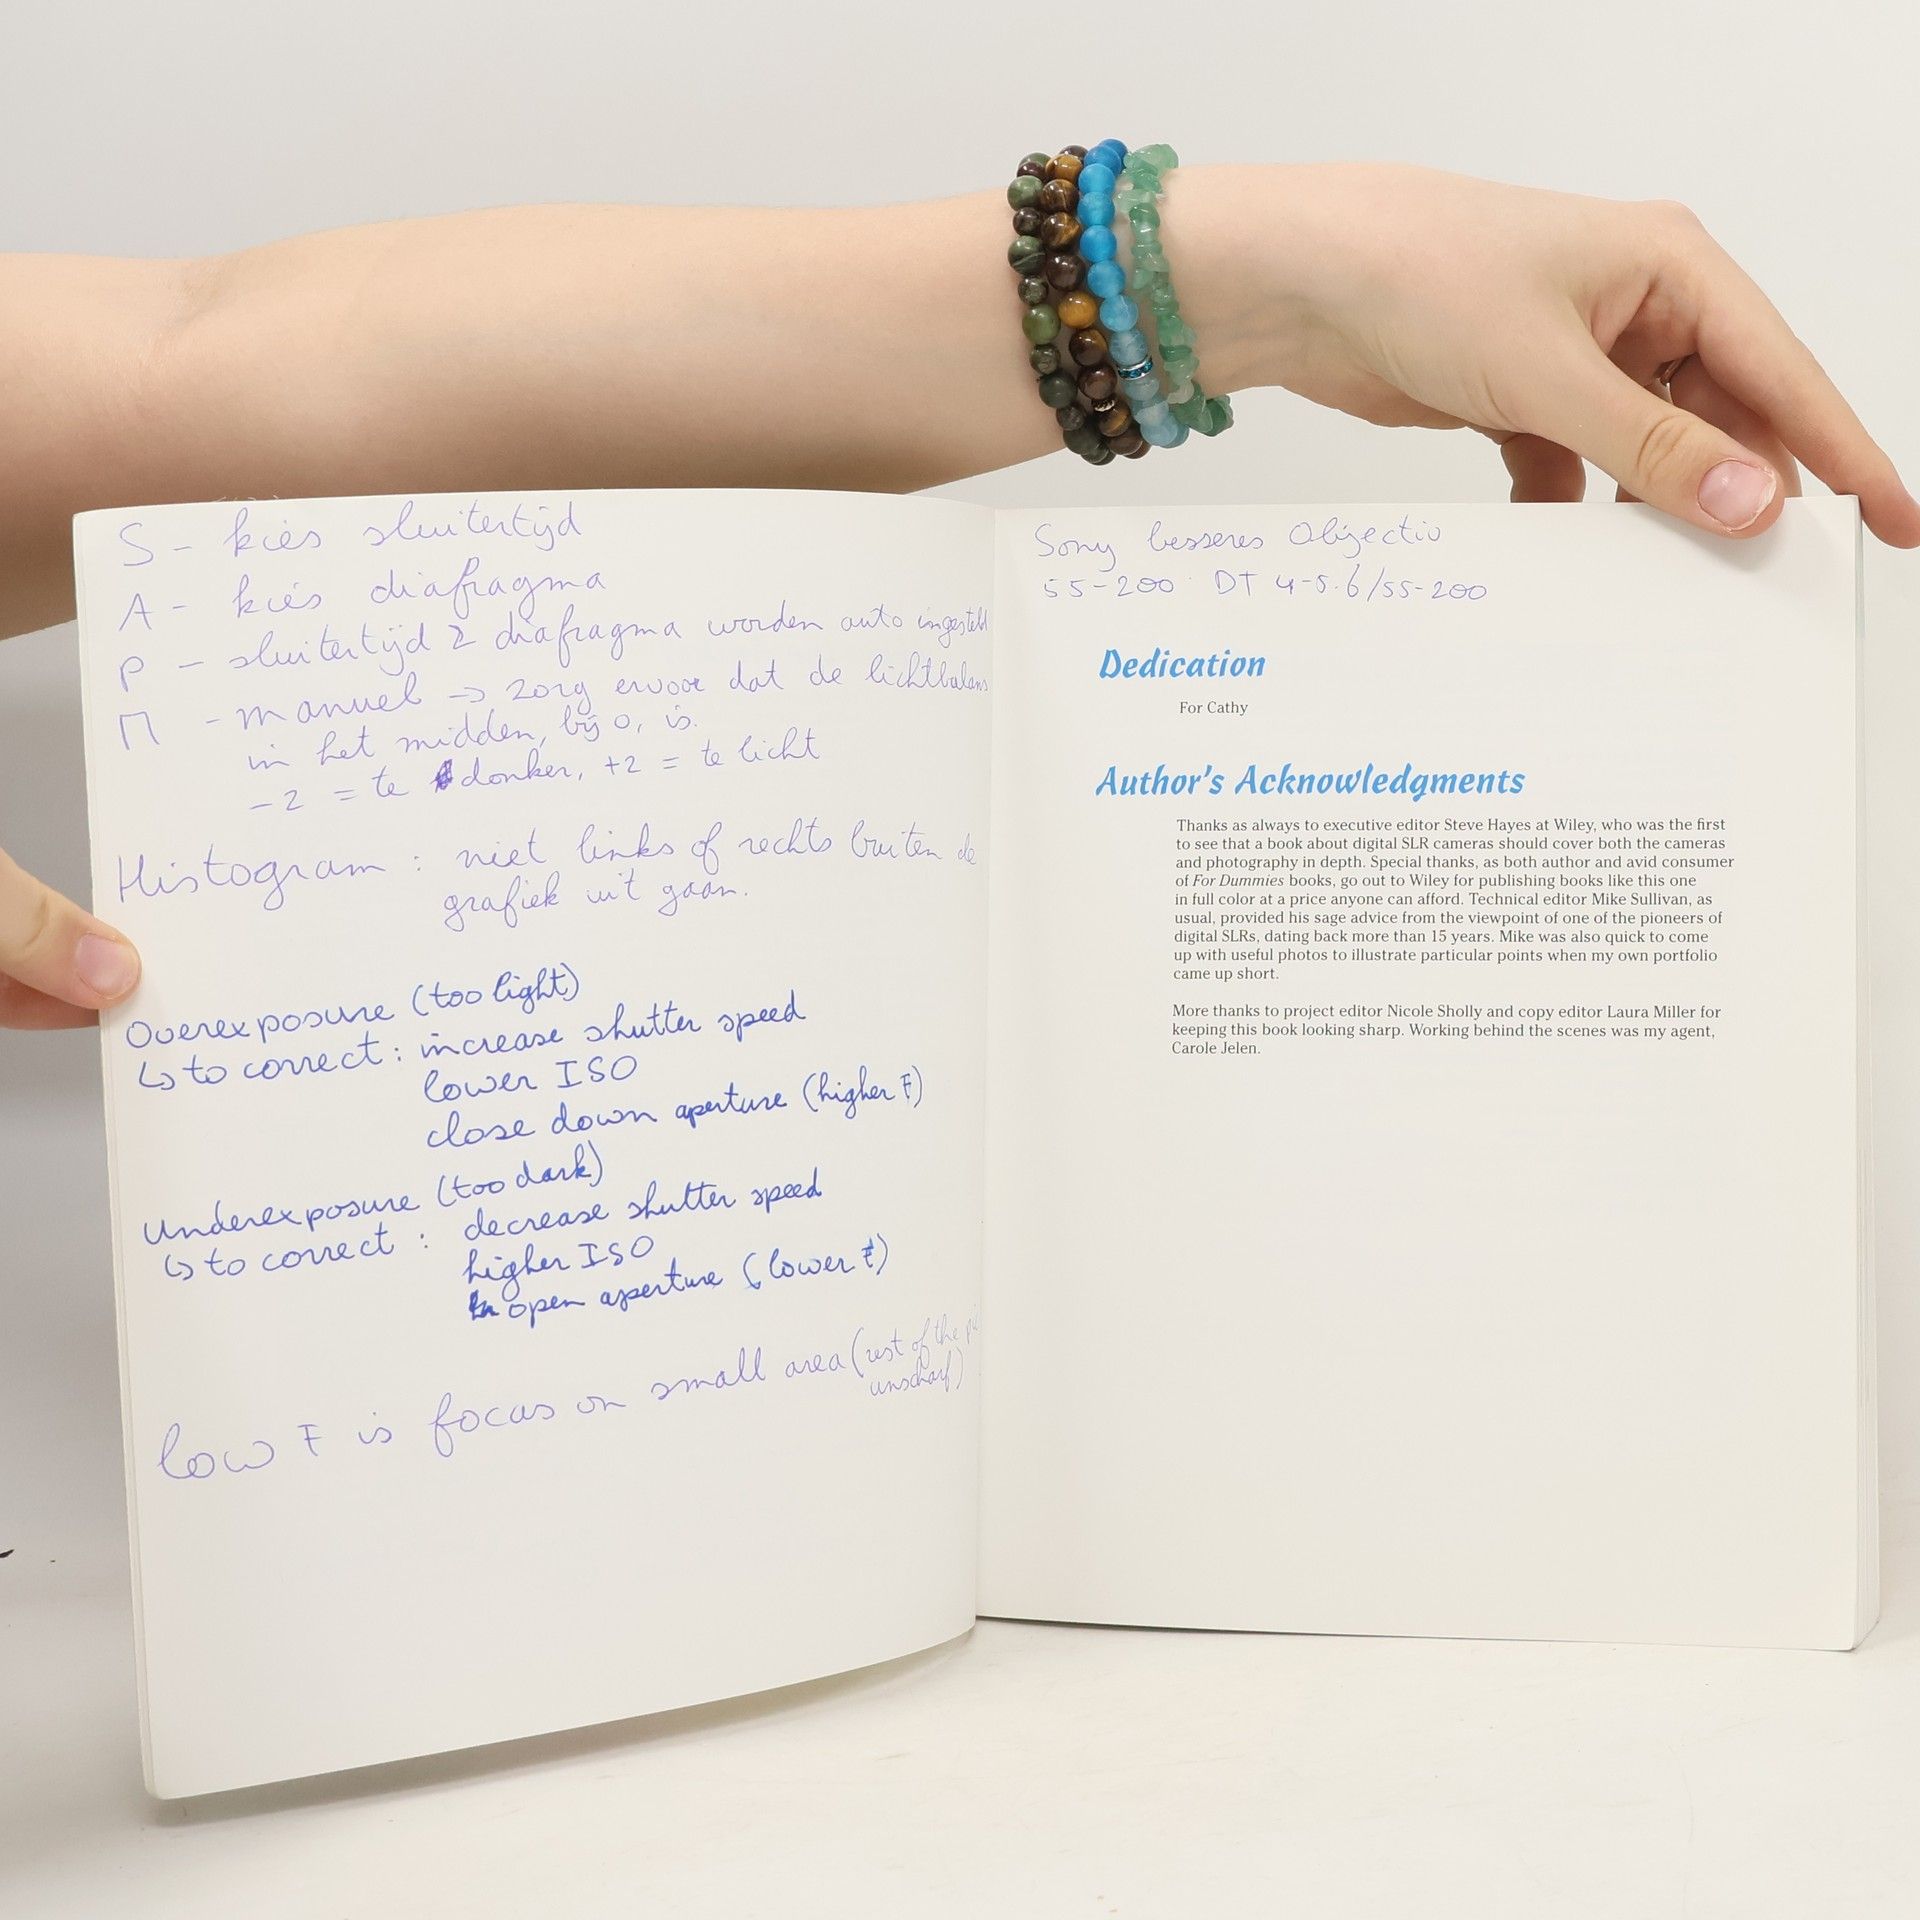 S - kies sluitertijd
A - kies diafragma
P - sluitertijd & diafragma worden auto ingesteld
M - manuel -> zorg ervoor dat de lichtbalans
in het midden, bij 0, is.
-2 = te donker, +2 = te licht
Histogram : niet links of rechts buiten de
grafiek uit gaan.
Overexposure (too light)
↳ to correct : increase shutter speed
lower ISO
close down aperture (higher F)
Underexposure (too dark)
↳ to correct : decrease shutter speed
higher ISO
open aperture (lower F)
low F is focus on small area (rest of the
unscharf)
Sony besseres Objectiv
55-200 DT 4-5.6/55-200
Dedication
For Cathy
Author's Acknowledgments
Thanks as always to executive editor Steve Hayes at Wiley, who was the first
to see that a book about digital SLR cameras should cover both the cameras
and photography in depth. Special thanks, as both author and avid consumer
of For Dummies books, go out to Wiley for publishing books like this one
in full color at a price anyone can afford. Technical editor Mike Sullivan, as
usual, provided his sage advice from the viewpoint of one of the pioneers of
digital SLRs, dating back more than 15 years. Mike was also quick to come
up with useful photos to illustrate particular points when my own portfolio
came up short.
More thanks to project editor Nicole Sholly and copy editor Laura Miller for
keeping this book looking sharp. Working behind the scenes was my agent,
Carole Jelen.